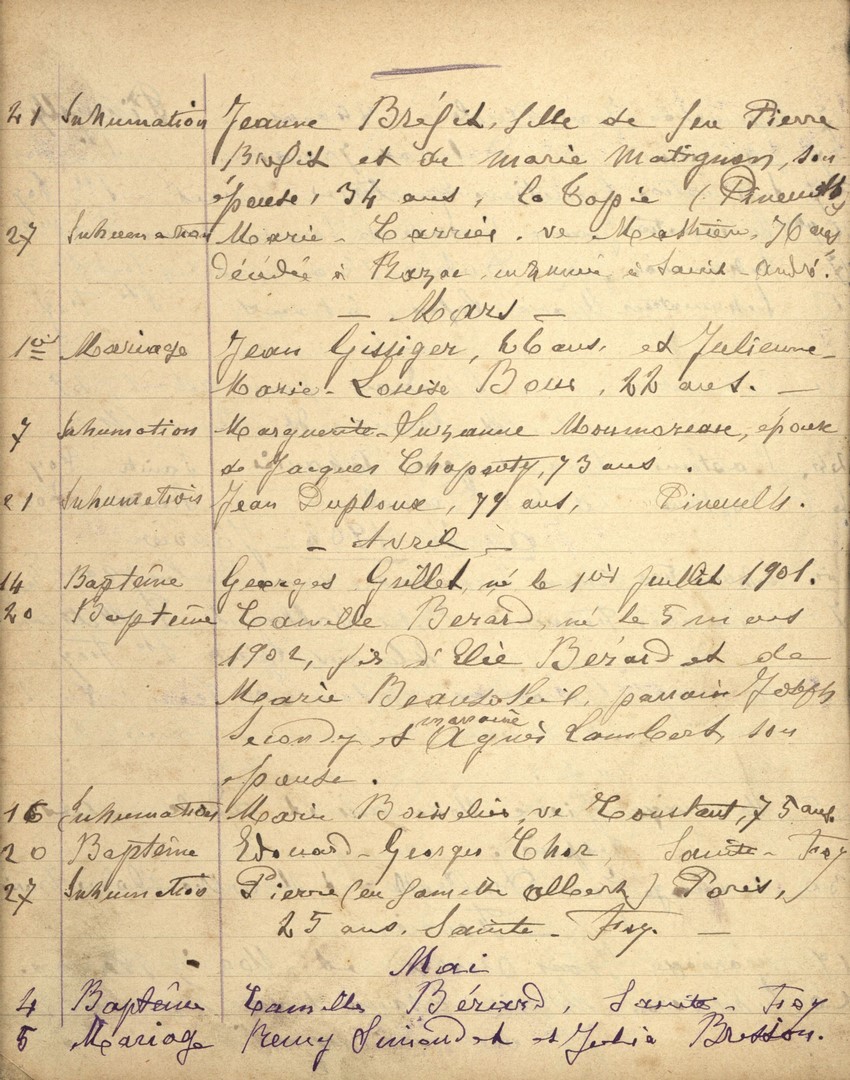 21 Inhumation Jeanne Bréfit, fille de feu Pierre
Brefit et de Marie Matignon, son
épouse, 34 ans, la Topie (Pineuilh)
27 Inhumation Marie Carrier, ve Mathieu, 76 ans
décédée à Razac, inhumée à Saint-André.
— Mars —
1er Mariage Jean Gissiger, 26 ans, et Julienne-
Marie-Louise Bous, 22 ans. —
7 Inhumation Marguerite-Suzanne Monmoreau, épouse
de Jacques Chapouty, 73 ans.
21 Inhumation Jean Duploux, 79 ans, Pineuilh.
- Avril -
14 Baptême Georges Grillet, né le 1er Juillet 1901.
20 Baptême Camille Berard, né le 5 mars
1902, fils d'Elie Bérard et de
Marie Beausoleil, parrain Joseph
Secondy et marraine Agnès Lambert, son
épouse.
16 Inhumation Marie Boisselier, ve Constant, 75 ans.
20 Baptême Edouard-Georges Chor, Sainte-Foy
27 Inhumation Pierre (en famille Albert) Paris,
25 ans. Sainte-Foy. —
Mai
4 Baptême Camille Bérard, Sainte-Foy
5 Mariage Remy Simandet et Julia Bresson.